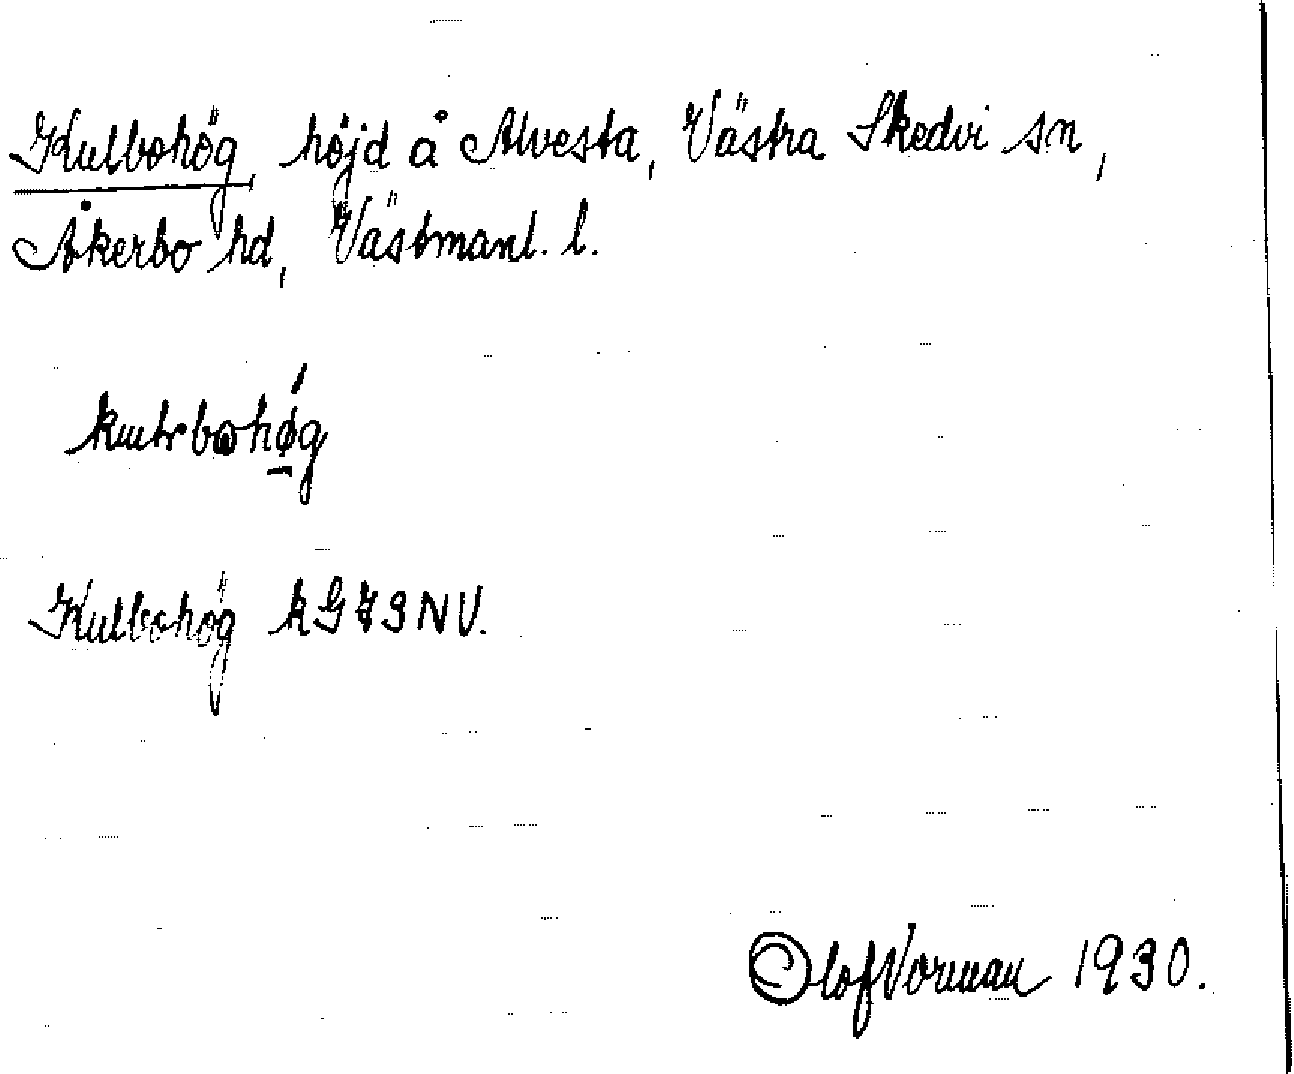 Kulbohög, höjd å Alvesta, Västra Skedvi sn,
Åkerbo hd, Västmanl. l.
Kulbohög kG73NV.
Olof Vorman 1930.